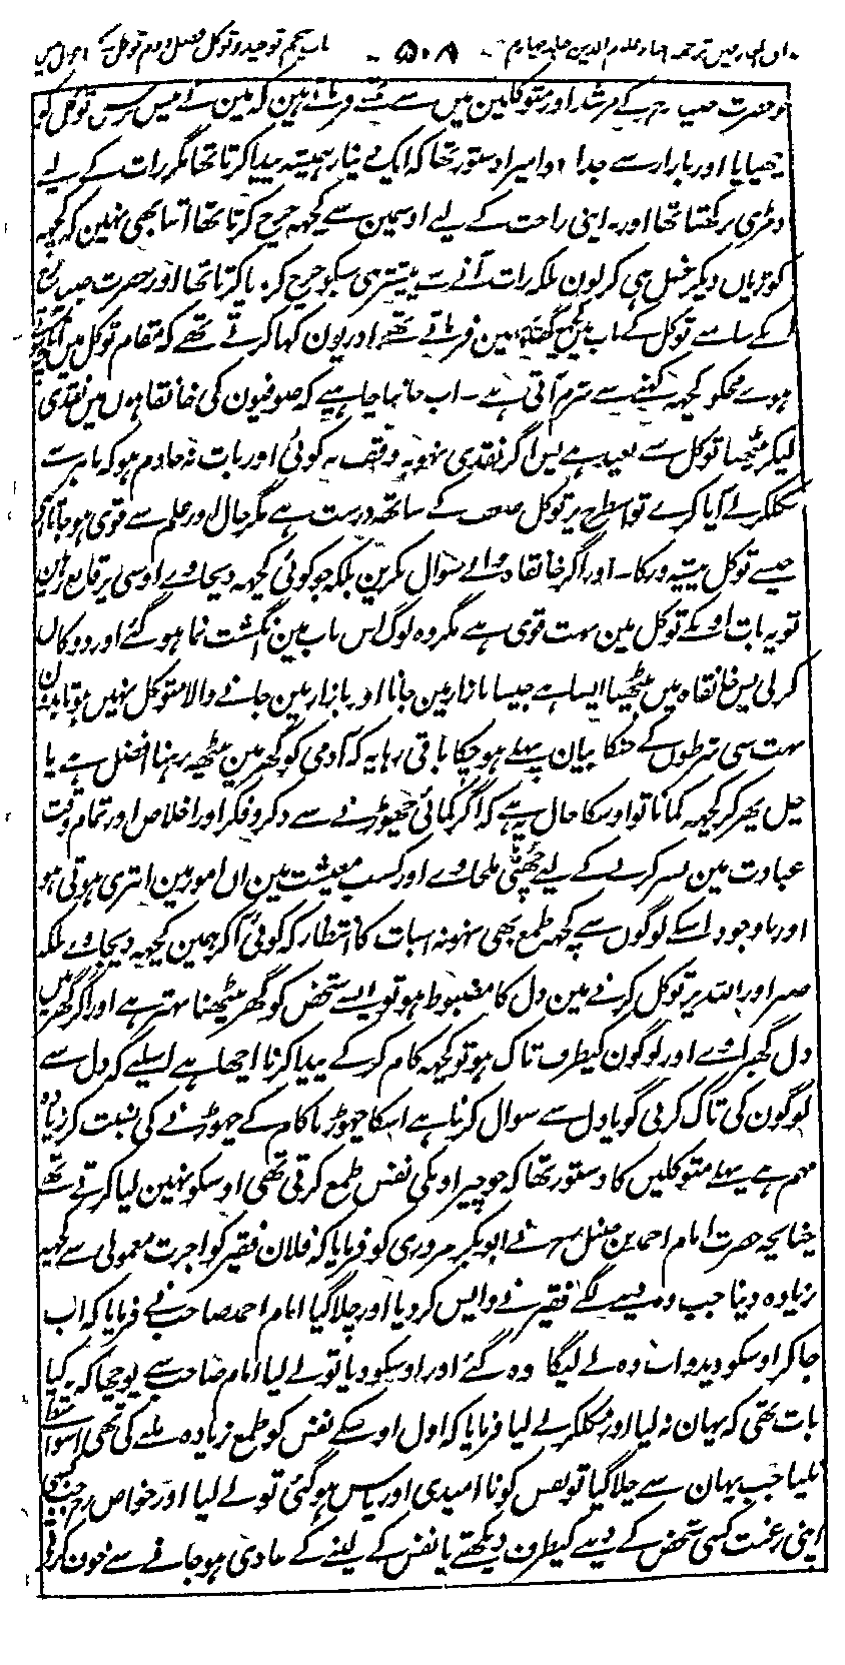 ترجمہ احیاء علوم الدین جلد چہارم ۵۰۸ باب پنجم توحید و توکل فصل دوم توکل کے
حضرت جنید رح کے مرشد اور متوکلین میں سے تھے فرماتے ہین کہ مین نے بیس برس توکل کو
چھپایا اور بازار سے جدا نہوا میرا دستور تھا کہ ایک دینار ہمیشہ پیدا کرتا تھا مگر رات کے لیے
دمڑی نہ رکھتا تھا اور نہ اپنی راحت کے لیے اوسمین سے کچھہ خرچ کرتا تھا اتنا بھی نہین کہ کچھہ
کوڑیاں دیکر غسل ہی کر لون بلکہ رات آنے سے پیشتر ہی سبکو خرچ کر دیا کرتا تھا اور حضرت جنید رح
انکے سامنے توکل کے باب میں کچھ گفتگو نہین فرماتے تھے اور یون کہا کرتے تھے کہ مقام توکل میں
ہوے مجکو کچھہ کہنے سے شرم آتی ہے ۔ اب جاننا چاہیے کہ صوفیون کی خانقاہوں میں نقدی
لیکر بیٹھنا توکل سے بعید ہے پس اگر نقدی نہو نہ وقف نہ کوئی اور بات نہ خادم ہو کہ باہر سے
نکلکر لے آیا کرے تو اسطرح پر توکل ضعف کے ساتھ درست ہے مگر حال اور علم سے قوی ہو جاتا ہے
جیسے توکل پیشہ ور کا ۔ اور اگر خانقاہ والے سوال نکرین بلکہ جو کوئی کچھہ دیجاوے اوسی پر قانع رہین
تو یہ بات اونکے توکل مین بہت قوی ہے مگر وہ لوگ اس باب مین انگشت نما ہو گئے اور دوکان
کر لی پس خانقاہ میں بیٹھنا ایسا ہے جیسا بازار مین جانا اور بازار مین جانے والا متوکل نہیں ہوتا بدون
بہت سی شرطوں کے جنکا بیان پہلے ہو چکا باقی رہا یہ کہ آدمی کو گھر مین بیٹھہ رہنا افضل ہے یا
چل پھر کر کچھہ کمانا تو اوسکا حال یہ ہے کہ اگر کمائی چھوڑنے سے ذکر و فکر اور اخلاص اور تمام وقت
عبادت مین بسر کرنے کے لیے چھٹی ملجاوے اور کسب معیشت مین ان امور مین ابتری ہوتی ہو
اور باوجود اسکے لوگوں سے کچھہ طمع بھی نہو نہ اسبات کا انتظار کہ کوئی آکر ہمین کچھہ دیجاوے بلکہ
صبر اور اللہ پر توکل کرنے مین دل کا مضبوط ہو تو ایسے شخص کو گھر بیٹھنا بہتر ہے اور اگر گھر میں
دل گھبراوے اور لوگون کیطرف تاک ہو تو کچھہ کام کر کے پیدا کرنا اچھا ہے اسلیے کہ دل سے
لوگون کی تاک کرنی گویا دل سے سوال کرنا ہے اسکا چھوڑنا کام کے چھوڑنے کی نسبت کر زیادہ
مہم ہے پہلے متوکلین کا دستور تھا کہ جو چیز اونکی نفس طمع کرتی تھی اوسکو نہین لیا کرتے تھے
چنانچہ حضرت امام احمد بن حنبل رح نے ابوبکر مروزی کو فرمایا کہ فلان فقیر کو اجرت معمولی سے کچھہ
زیادہ دینا جب وہ دینے لگے فقیر نے واپس کر دیا اور چلا گیا امام احمد صاحب نے فرمایا کہ اب
جاکر اوسکو دیدو اب وہ لے لیگا وہ گئے اور اوسکو دیا تو لے لیا امام صاحب سے پوچھا کہ یہ کیا
بات تھی کہ یہان نہ لیا اور نکلکر لے لیا فرمایا کہ اول اوسکے نفس کو طمع زیادہ ملنے کی تھی
نلیا جب یہان سے چلا گیا تو نفس کو نا امیدی اور یاس ہو گئی تو لے لیا اور خواص رح جب
اپنی رغبت کسی شخص کے دینے کیطرف دیکھتے یا نفس کے لینے کے عادی ہو جانے سے خوف کرتے